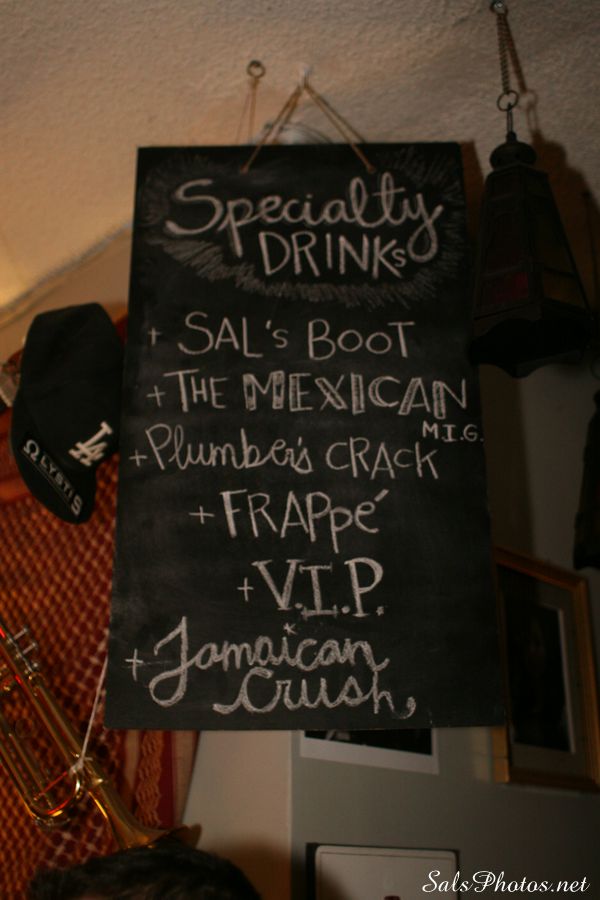 Specialty
DRINKs
+ SAL's BOOT
+ THE MEXICAN
M.I.G.
+ Plumber's CRACK
+ FRAPPé
+ V.I.P.
+ Jamaican
Crush
LA
SalsPhotos.net